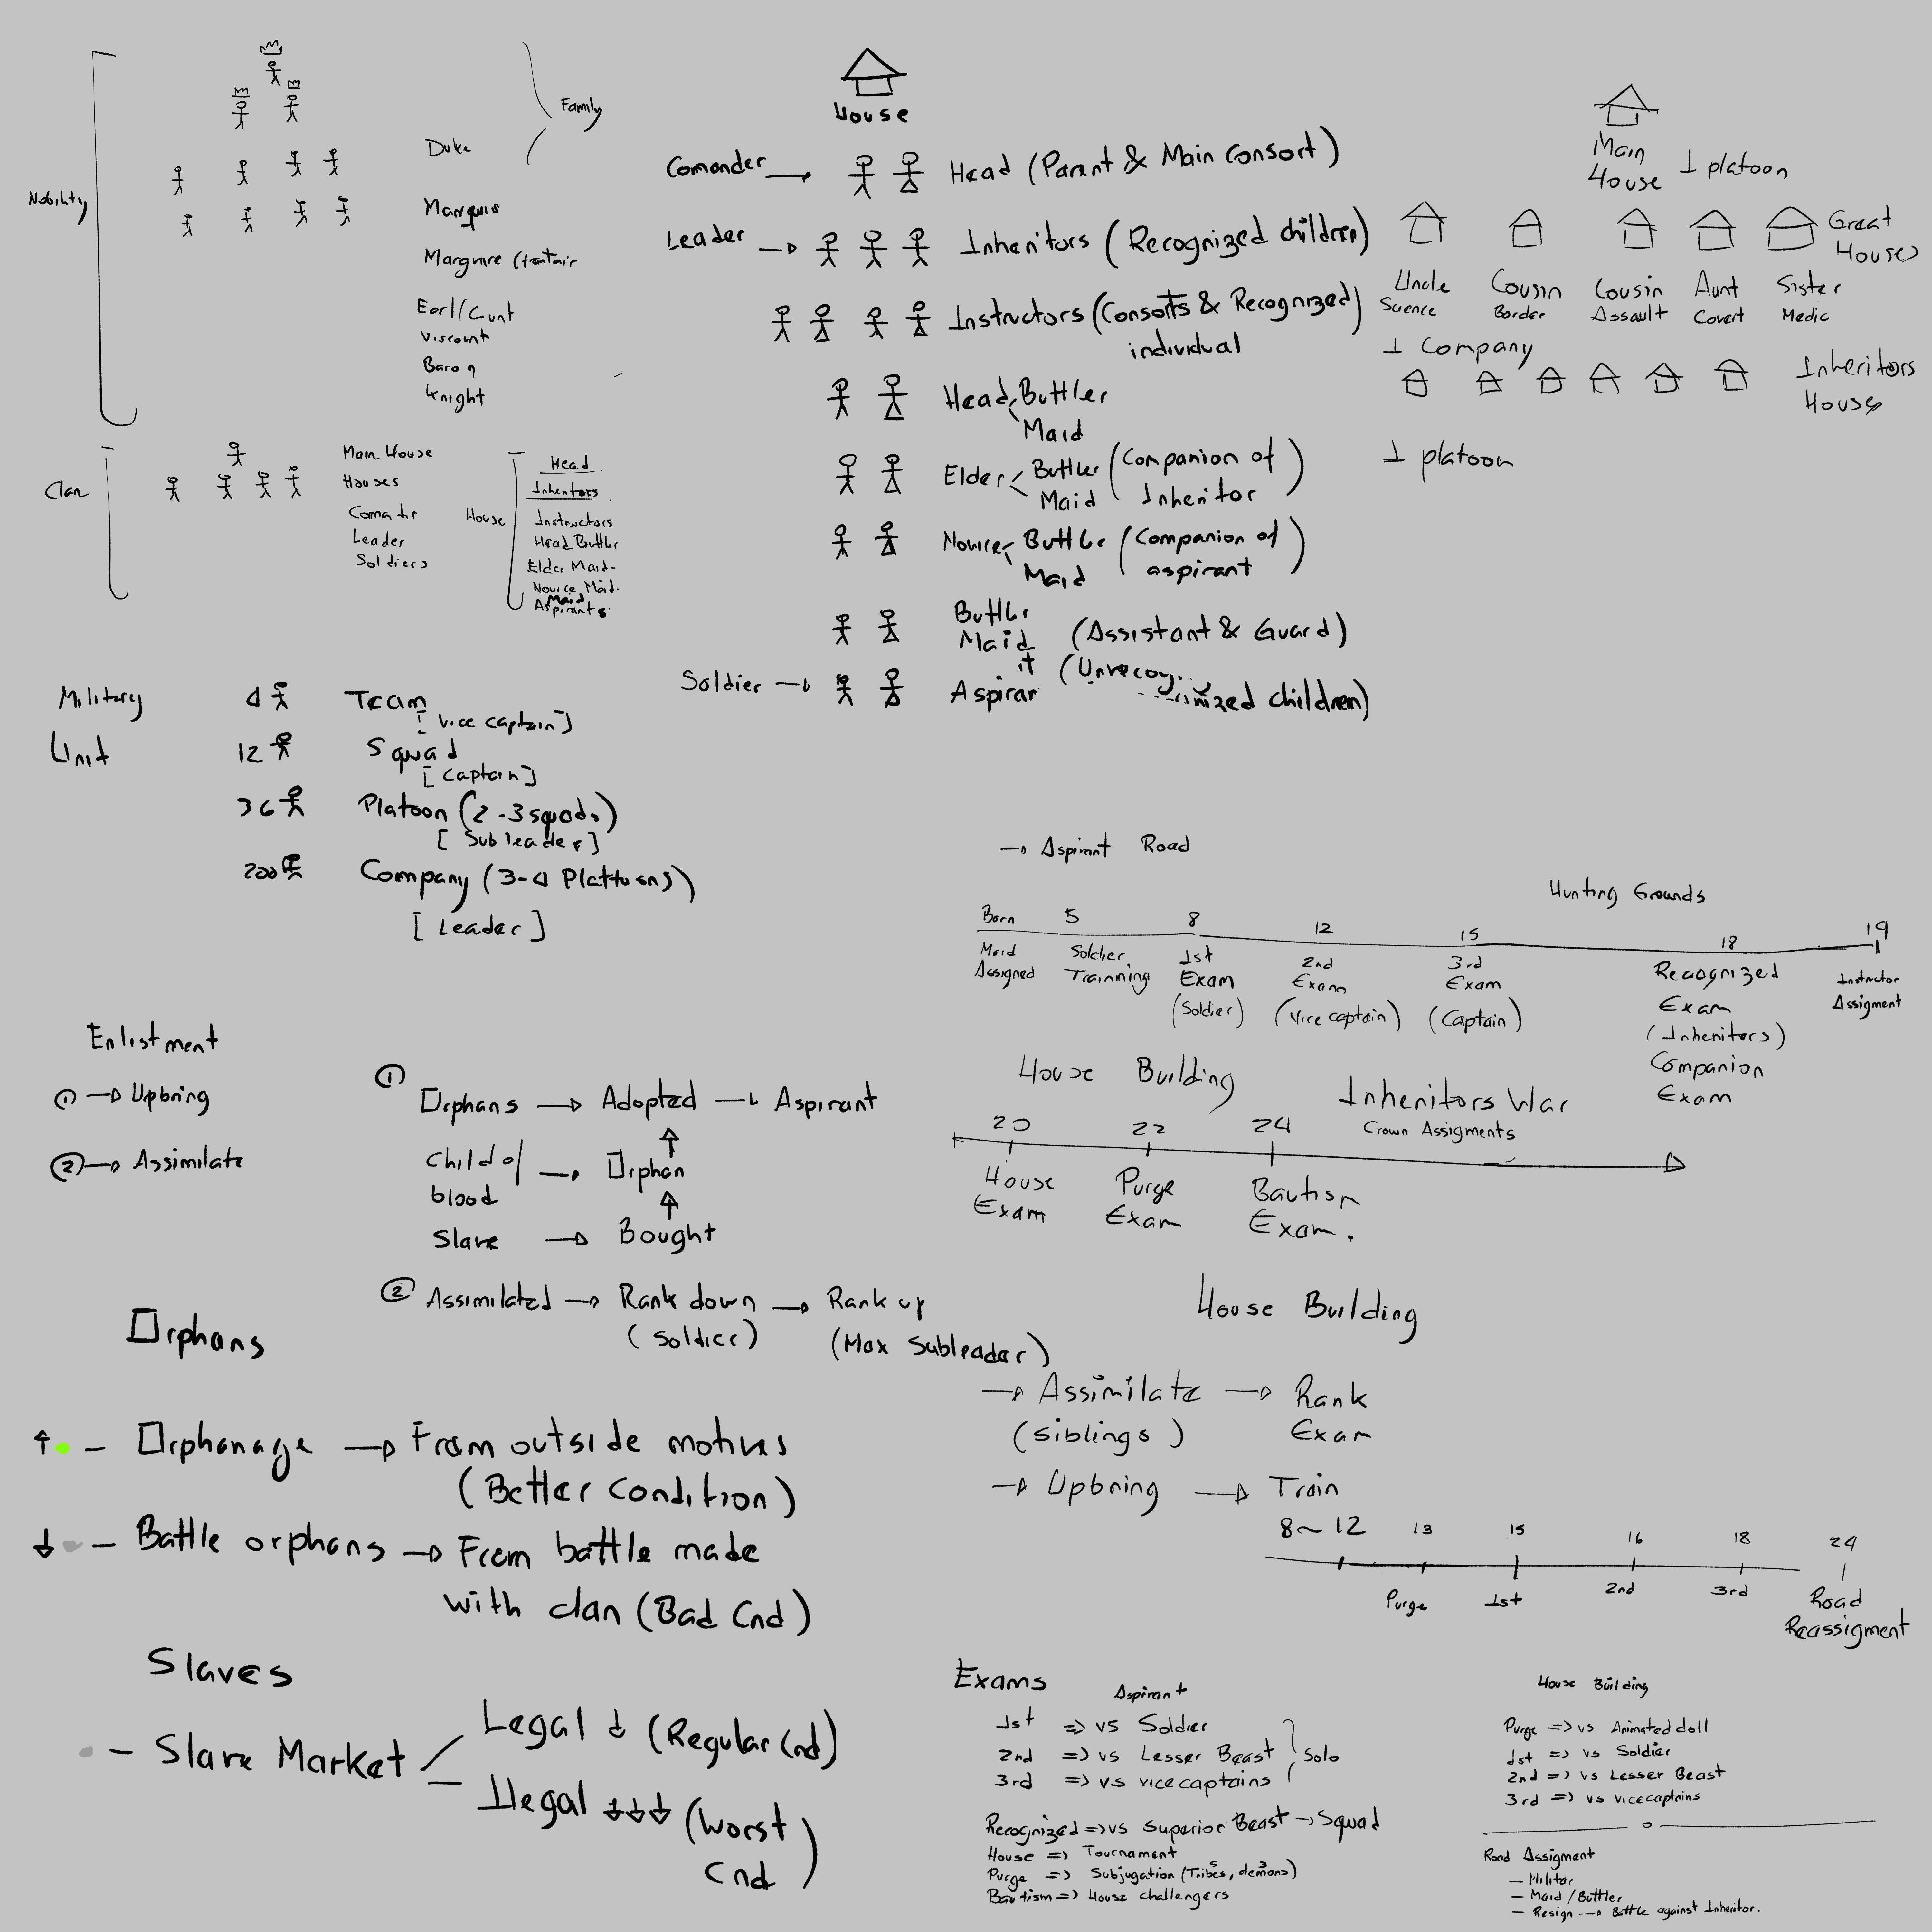 Nobility
Family
Duke
Marquis
Earl/Count
Viscount
Baron
Knight
Clan
Main House
Houses
Leader
Soldiers
House
Head
Inheritors
Instructors
Head Buttler
Elder Maid
Novice Maid
Maid
Aspirants
House
Comander
Head (Parent & Main Consort)
Leader
Inheritors (Recognized children)
Instructors (Consorts & Recognized)
individual
Head Buttler
Maid
Elder Buttler (Companion of
Maid Inheritor)
Novice Buttler (Companion of
Maid aspirant)
Buttler
Maid (Assistant & Guard)
Soldier
Aspirant
children)
Main
House
1 platoon
Great
Houses
Uncle
Science
Cousin
Border
Cousin
Assault
Aunt
Covert
Sister
Medic
1 Company
Inheritors
House
1 platoon
Military
Unit
4 Team
[Vice captain]
12 Squad
[Captain]
36 Platoon (2-3 squads)
[Subleader]
200 Company (3-4 Plattoons)
[Leader]
Aspirant Road
Hunting Grounds
Born 5 8 12 15 18 19
Maid
Assigned
Soldier
Trainning
1st
Exam
(Soldier)
2nd
Exam
(Vice captain)
3rd
Exam
(Captain)
Recognized
Exam
(Inheritors)
Companion
Exam
Instructor
Assigment
House Building
Inheritors War
Crown Assigments
20 22 24
House
Exam
Purge
Exam
Bautism
Exam.
Enlistment
① → Upbring
② → Assimilate
①
Orphans → Adopted → Aspirant
Child of
blood → Orphan
Slave → Bought
② Assimilated → Rank down → Rank up
(Soldier) (Max Subleader)
House Building
→ Assimilate → Rank
(Siblings) Exam
→ Upbring → Train
8~12 13 15 16 18 24
Purge 1st 2nd 3rd Road
Reassigment
Orphans
↑ - Orphanage → From outside motives
(Better Condition)
↓ - Battle orphans → From battle made
with clan (Bad Cnd)
Slaves
- Slave Market
Legal ↓ (Regular Cnd)
Ilegal ↓↓↓ (Worst
Cnd)
Exams
Aspirant
1st => vs Soldier
2nd => vs Lesser Beast
3rd => vs vice captains
Solo
Recognized => vs Superior Beast → Squad
House => Tournament
Purge => Subjugation (Tribes, demons)
Bautism => House challengers
House Building
Purge => vs Animated doll
1st => vs Soldier
2nd => vs Lesser Beast
3rd => vs vice captains
Road Assigment
- Militar
- Maid / Buttler
- Resign → Battle against Inheritor.